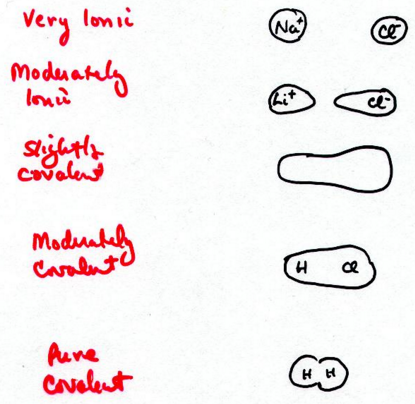 Very Ionic Na+ Cl-
Moderately
Ionic Li+ Cl-
Slightly
covalent
Moderately
Covalent H Cl
Pure
Covalent H H